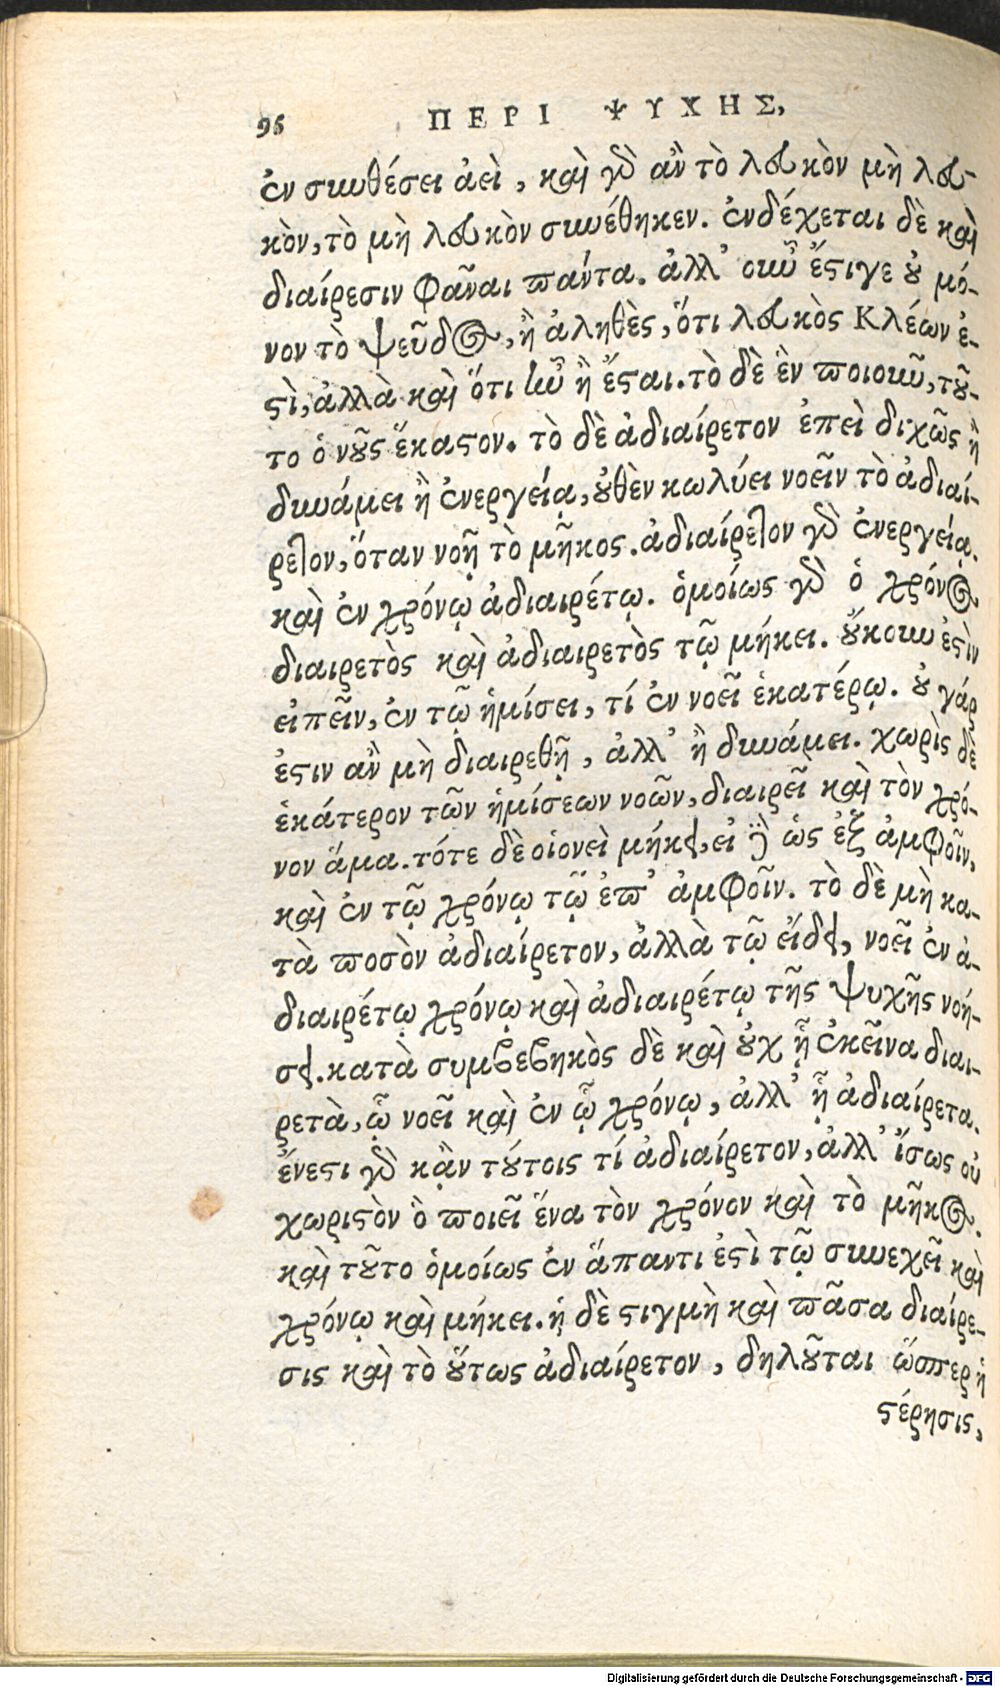 96 ΠΕΡΙ ΨΥΧΗΣ,
ἐν συνθέσει ἀεὶ, καὶ γὰρ ἂν τὸ λευκὸν μὴ λευ-
κὸν, τὸ μὴ λευκὸν συνέθηκεν. ἐνδέχεται δὲ καὶ
διαίρεσιν φᾶναι πάντα. ἀλλ' οὖν ἔστιγε οὐ μό-
νον τὸ ψεῦδος, ἢ ἀληθὲς, ὅτι λευκὸς Κλέων ἐ-
στὶ, ἀλλὰ καὶ ὅτι ἦν ἢ ἔσται. τὸ δὲ ἓν ποιοῦν, τοῦ-
το ὁ νοῦς ἕκαστον. τὸ δὲ ἀδιαίρετον ἐπεὶ διχῶς ἢ
δυνάμει ἢ ἐνεργείᾳ, οὐθὲν κωλύει νοεῖν τὸ ἀδιαί-
ρετον, ὅταν νοῇ τὸ μῆκος. ἀδιαίρετον γὰρ ἐνεργείᾳ.
καὶ ἐν χρόνῳ ἀδιαιρέτῳ. ὁμοίως γὰρ ὁ χρόνος
διαιρετὸς καὶ ἀδιαιρετὸς τῷ μήκει. οὔκουν ἐστὶν
εἰπεῖν, ἐν τῷ ἡμίσει, τί ἐν νοεῖ ἑκατέρῳ. οὐ γάρ
ἐστιν ἂν μὴ διαιρεθῇ, ἀλλ' ἢ δυνάμει. χωρὶς δὲ
ἑκάτερον τῶν ἡμίσεων νοῶν, διαιρεῖ καὶ τὸν χρό-
νον ἅμα. τότε δὲ οἱονεὶ μήκει, εἰ δὲ ὡς ἐξ ἀμφοῖν,
καὶ ἐν τῷ χρόνῳ τῷ ἐπ' ἀμφοῖν. τὸ δὲ μὴ κα-
τὰ ποσὸν ἀδιαίρετον, ἀλλὰ τῷ εἴδει, νοεῖ ἐν ἀ-
διαιρέτῳ χρόνῳ καὶ ἀδιαιρέτῳ τῆς ψυχῆς νοή-
σει. κατὰ συμβεβηκὸς δὲ καὶ οὐχ ᾗ ἐκεῖνα διαι-
ρετὰ, ᾧ νοεῖ καὶ ἐν ᾧ χρόνῳ, ἀλλ' ᾗ ἀδιαίρετα.
ἔνεστι γὰρ κᾂν τούτοις τί ἀδιαίρετον, ἀλλ' ἴσως οὐ
χωριστὸν ὃ ποιεῖ ἕνα τὸν χρόνον καὶ τὸ μῆκος.
καὶ τοῦτο ὁμοίως ἐν ἅπαντι ἐστὶ τῷ συνεχεῖ καὶ
χρόνῳ καὶ μήκει. ἡ δὲ στιγμὴ καὶ πᾶσα διαίρε-
σις καὶ τὸ οὕτως ἀδιαίρετον, δηλοῦται ὥσπερ ἡ
στέρησις,
Digitalisierung gefördert durch die Deutsche Forschungsgemeinschaft - DFG